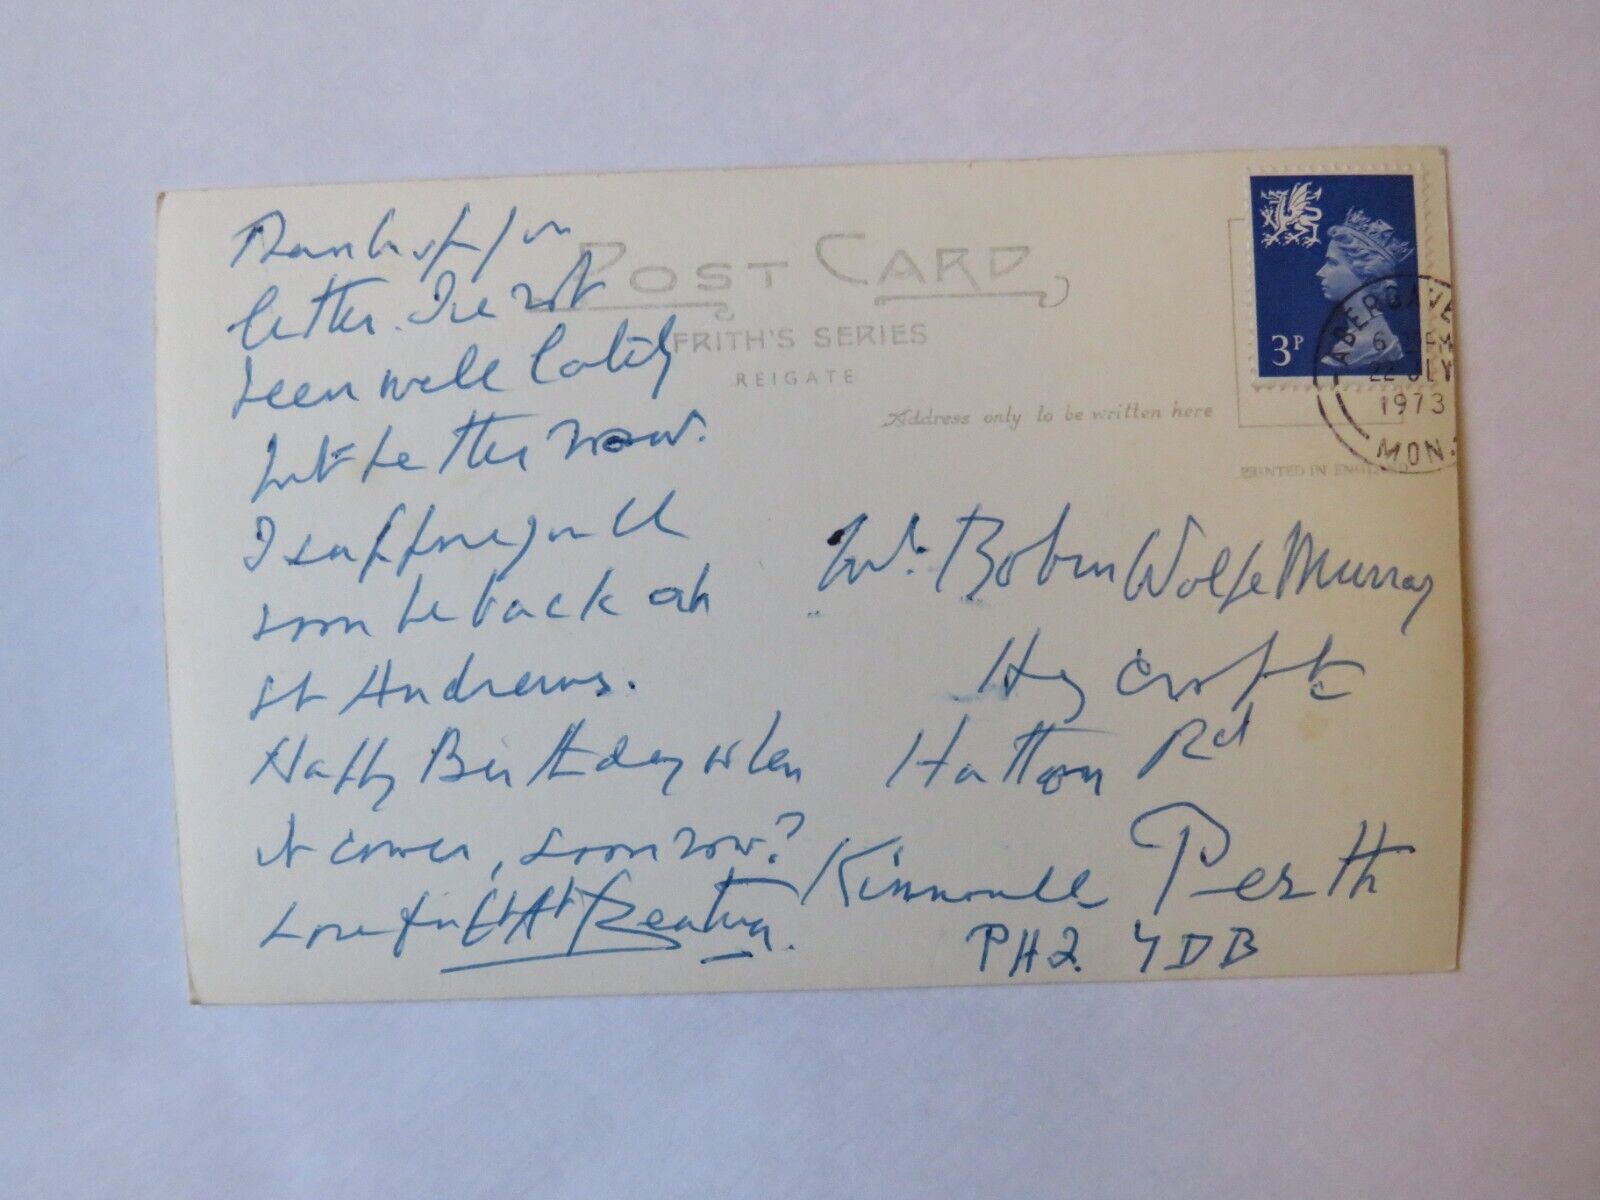 Thank you for yr
letter. I've not
been well lately
but better now.
I suppose you'll
soon be back at
St Andrews.
Happy Birthday when
it comes, soon now?
Love from
POST CARD
FRITH'S SERIES
REIGATE
Address only to be written here
3P
ABERGAVE
6
22 JLY
1973
MON.
PRINTED IN ENGLAND
Robin Wolfe Murray
Hey croft
Hatton Rd
Kinnoull Perth
PH2 7DB